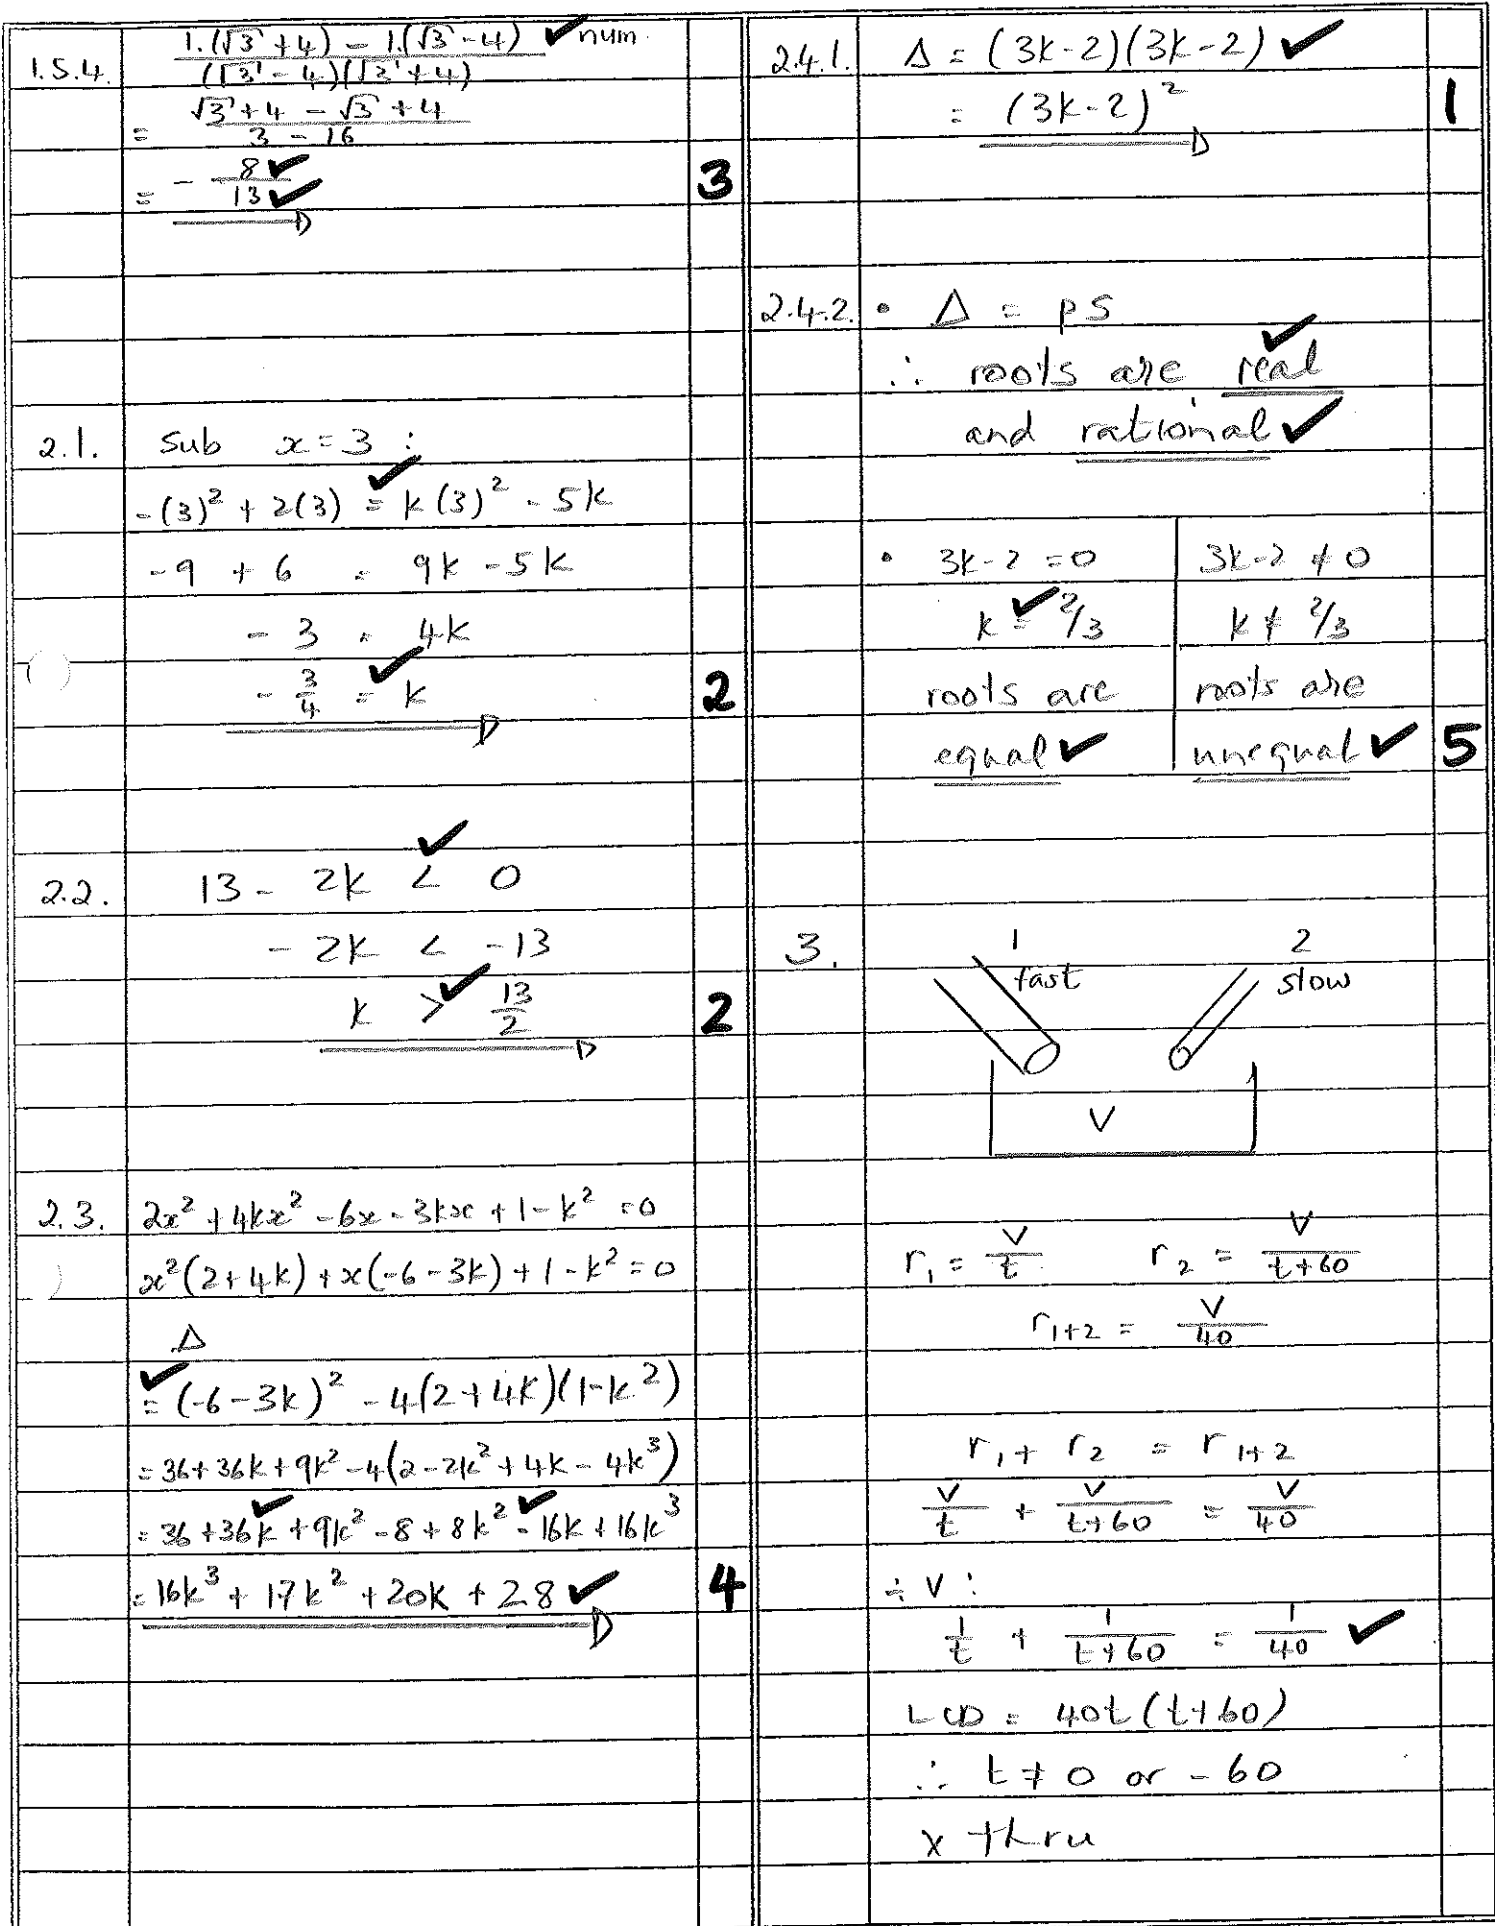 1.5.4. 1.(√3 + 4) - 1.(√3 - 4) / (√3 - 4)(√3 + 4) ✓ num.
= √3 + 4 - √3 + 4 / 3 - 16
= - 8 ✓ / 13 ✓
3
2.1. Sub x = 3 :
-(3)² + 2(3) =✓ k(3)² - 5k
-9 + 6 = 9k - 5k
-3 = 4k
-3/4 =✓ k
2
2.2. 13 - 2k <✓ 0
-2k < -13
k >✓ 13/2
2
2.3. 2x² + 4kx² - 6x - 3kx + 1 - k² = 0
x²(2+4k) + x(-6-3k) + 1 - k² = 0
Δ
✓= (-6-3k)² - 4(2+4k)(1-k²)
= 36+36k+9k²-4(2-2k²+4k-4k³)
= 36+36k✓+9k²-8+8k²✓-16k+16k³
= 16k³ + 17k² + 20k + 28 ✓
4
2.4.1. Δ = (3k-2)(3k-2) ✓
= (3k-2)²
1
2.4.2. • Δ = ps
∴ roots are real ✓
and rational ✓
• 3k-2 = 0 | 3k-2 ≠ 0
k =✓ 2/3 | k ≠ 2/3
roots are | roots are
equal ✓ | unequal ✓
5
3. 1 2
fast slow
V
r₁ = V/t r₂ = V/t+60
r₁₊₂ = V/40
r₁ + r₂ = r₁₊₂
V/t + V/t+60 = V/40
÷ V :
1/t + 1/t+60 = 1/40 ✓
LCD = 40t(t+60)
∴ t ≠ 0 or -60
x thru